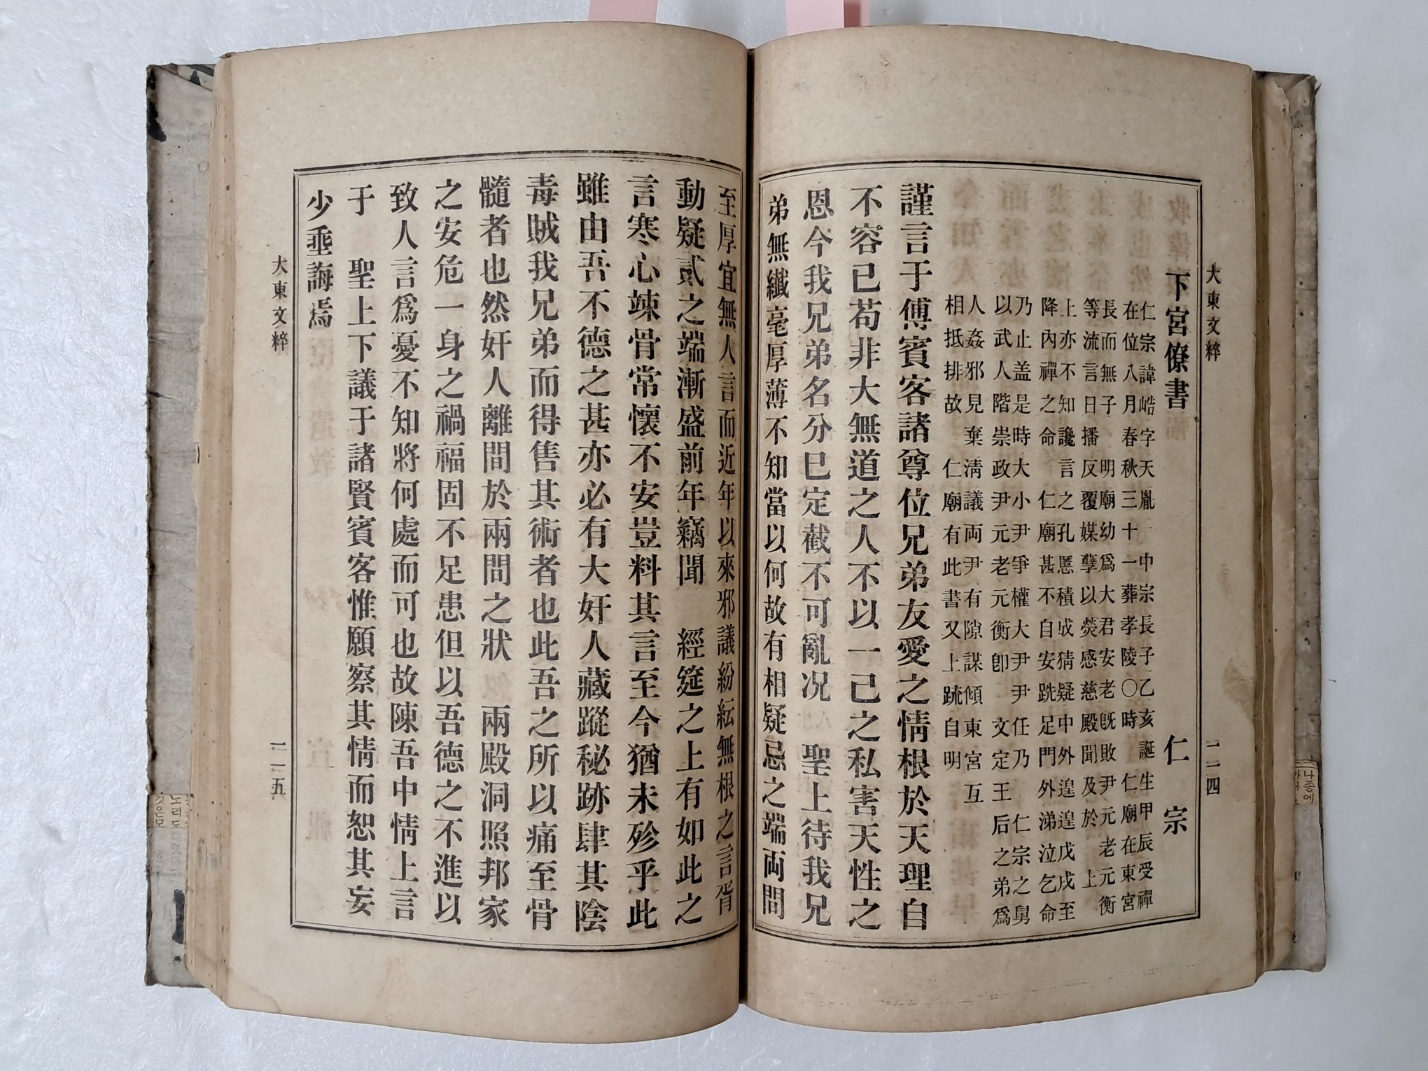 大東文粹
二一四
下宮僚書 仁宗
仁宗諱峼字天胤一中宗長子乙亥誕生甲辰受禪
在位八月春秋三十一葬孝陵〇時 仁廟在東宮
長而無子 明廟幼爲大君安老旣敗尹元老元衡
等流言日播反覆媒孽以熒惑慈殿聞及於 上
上亦不知讒言之孔慝積成猜疑中外遑遑戊戌至
降內禪之命 仁廟甚不自安跣足門外涕泣乞命
乃止盖是時大小尹爭權大尹尹任乃 仁宗之舅
以武人階崇政尹元老元衡卽 文定王后之弟爲
人姦邪見棄淸議両尹有隙謀傾東宮互
相抵排故 仁廟有此書又上䟽自明
謹言于傅賓客諸尊位兄弟友愛之情根於天理自
不容已苟非大無道之人不以一己之私害天性之
恩今我兄弟名分已定截不可亂况 聖上待我兄
弟無纖毫厚薄不知當以何故有相疑忌之端両間
至厚宜無人言而近年以來邪議紛紜無根之言胥
動疑貳之端漸盛前年竊聞 經筵之上有如此之
言寒心竦骨常懷不安豈料其言至今猶未殄乎此
雖由吾不德之甚亦必有大奸人藏蹤秘跡肆其陰
毒賊我兄弟而得售其術者也此吾之所以痛至骨
髓者也然奸人離間於兩間之狀 兩殿洞照邦家
之安危一身之禍福固不足患但以吾德之不進以
致人言爲憂不知將何處而可也故陳吾中情上言
于 聖上下議于諸賢賓客惟願察其情而恕其妄
少垂誨焉
大東文粹
二一五